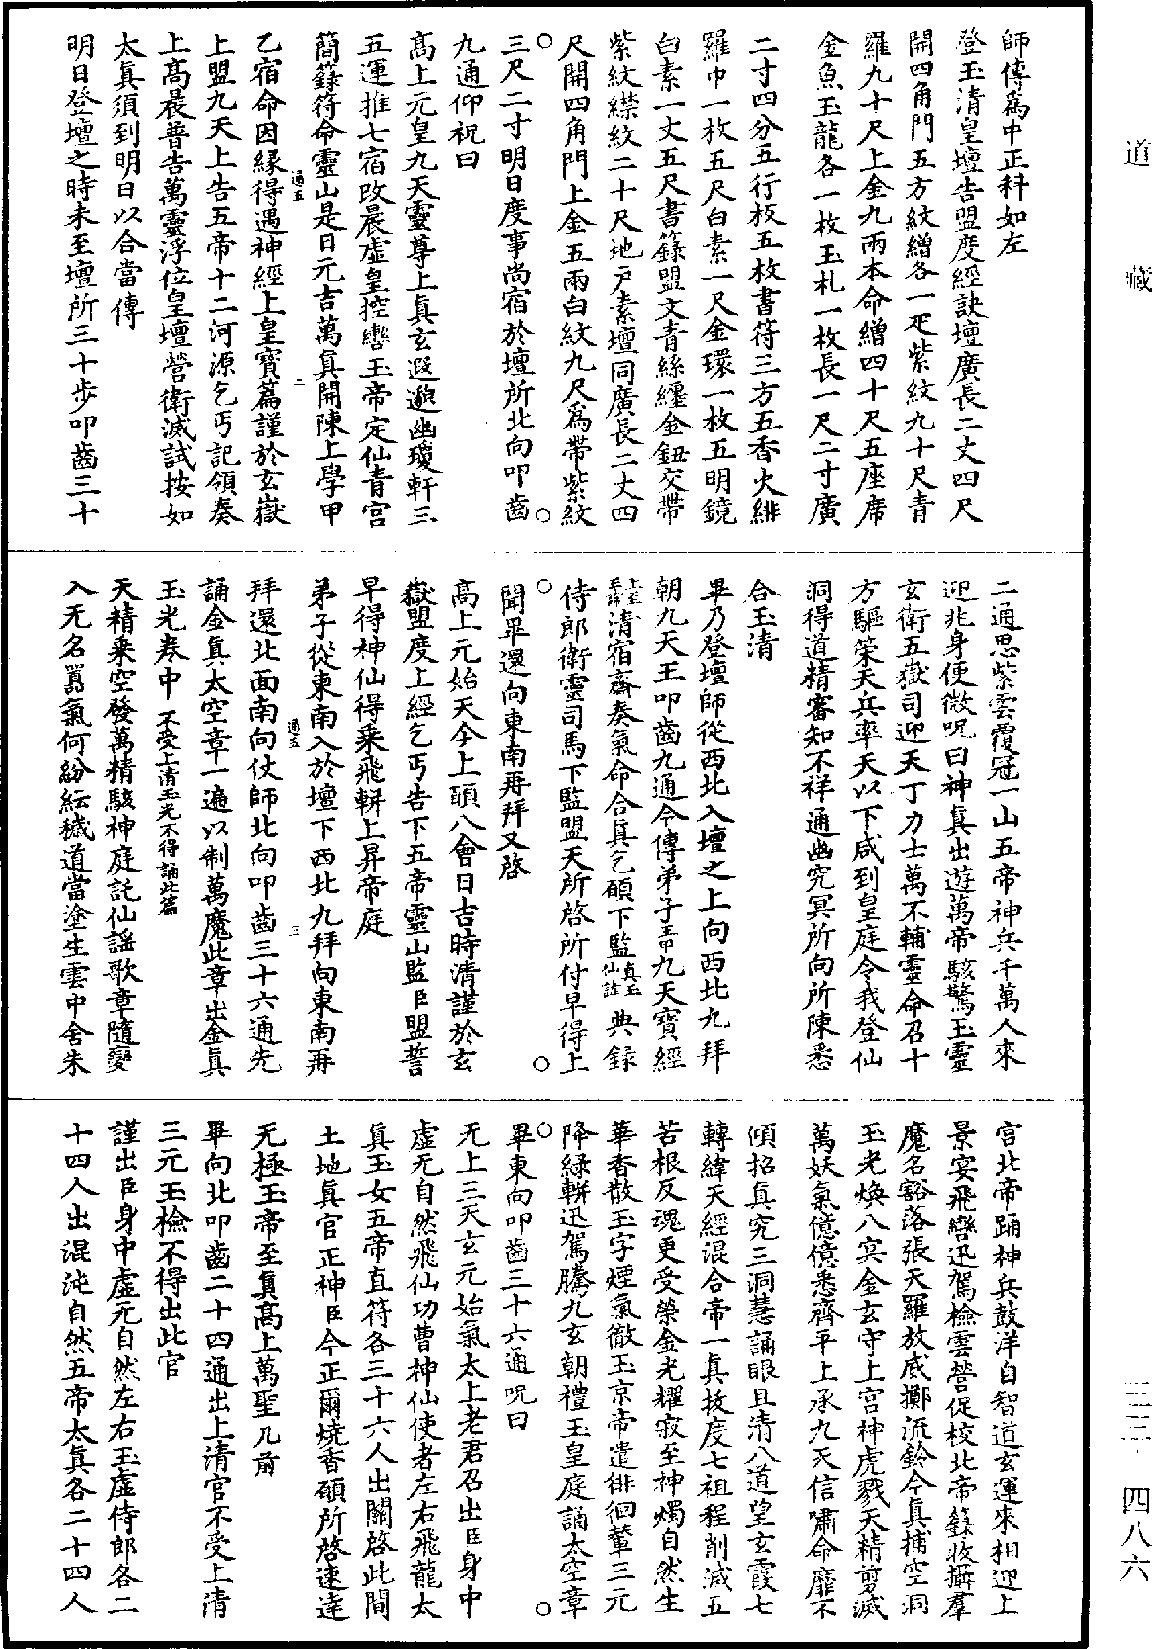 道藏
三三·四八六
師傳爲中正科如左
登玉清皇壇告盟度經訣壇廣長二丈四尺
開四角門五方紋繒各一疋紫紋九十尺青
羅九十尺上金九兩本命繒四十尺五座席
金魚玉龍各一枚玉札一枚長一尺二寸廣
二寸四分五行板五枚書符三方五香火緋
羅巾一枚五尺白素一尺金環一枚五明鏡
白素一丈五尺書籙盟文青絲纏金鈕交帶
紫紋襟紋二十尺地戶素壇同廣長二丈四
尺開四角門上金五兩白紋九尺爲帶紫紋
三尺二寸明日度事尚宿於壇所北向叩齒
九通仰祝曰
高上元皇九天靈尊上眞玄遐邈幽瓊軒三
五運推七宿改晨虛皇控轡玉帝定仙青宮
簡籙符命靈山是日元吉萬眞開陳上學甲
通五　二
乙宿命因緣得遇神經上皇寶篇謹於玄嶽
上盟九天上告五帝十二河源乞丐記領奏
上高晨普告萬靈浮位皇壇營衛滅試按如
太眞須到明日以合當傳
明日登壇之時未至壇所三十步叩齒三十
二通思紫雲覆冠一山五帝神兵千萬人來
迎兆身便微呪曰神眞出遊萬帝駭驚玉靈
玄衛五嶽司迎天丁力士萬不輔靈命召十
方驅策天兵率天以下咸到皇庭令我登仙
洞得道精審知不祥通幽究冥所向所陳悉
合玉清
畢乃登壇師從西北入壇之上向西北九拜
朝九天王叩齒九通今傳弟子王甲九天寶經
清宿齋奏氣命合眞乞願下監眞玉仙詮典錄
侍郎衛靈司馬下監盟天所啓所付早得上
聞畢還向東南再拜又啓
高上元始天今上願八會日吉時清謹於玄
嶽盟度上經乞丐告下五帝靈山監臣盟誓
早得神仙得乘飛軿上昇帝庭
弟子從東南入於壇下西北九拜向東南再
通五　三
拜還北面南向伏師北向叩齒三十六通先
誦金眞太空章一遍以制萬魔此章出金眞
玉光卷中不受上清玉光不得誦此篇
天精乘空發萬精駭神庭託仙謠歌章隨變
入无名囂氣何紛紜穢道當塗生雲中舍朱
宮北帝踊神兵鼓洋自智道玄運來相迎上
景宴飛轡迅駕檢雲營促校北帝籙收攝羣
魔名豁落張天羅放威擲流鈴今眞捕空洞
玉光煥八冥金玄守上宮神虎戮天精剪滅
萬妖氣億億悉齊平上承九天信嘯命靡不
傾招眞究三洞慧誦眼且清八道望玄霞七
轉緯天經混合帝一眞拔度七祖程削滅五
苦根反魂更受榮金光耀寂至神燭自然生
華香散玉字煙氣徹玉京帝遣徘徊輦三元
降綠軿迅駕騰九玄朝禮玉皇庭誦太空章
畢東向叩齒三十六通呪曰
无上三天玄元始氣太上老君召出臣身中
虛无自然飛仙功曹神仙使者左右飛龍太
眞玉女五帝直符各三十六人出關啓此間
土地眞官正神臣今正爾燒香願所啓速達
无極玉帝至眞高上萬聖几前
畢向北叩齒二十四通出上清官不受上清
三元玉檢不得出此官
謹出臣身中虛无自然左右玉虛侍郎各二
十四人出混沌自然五帝太眞各二十四人